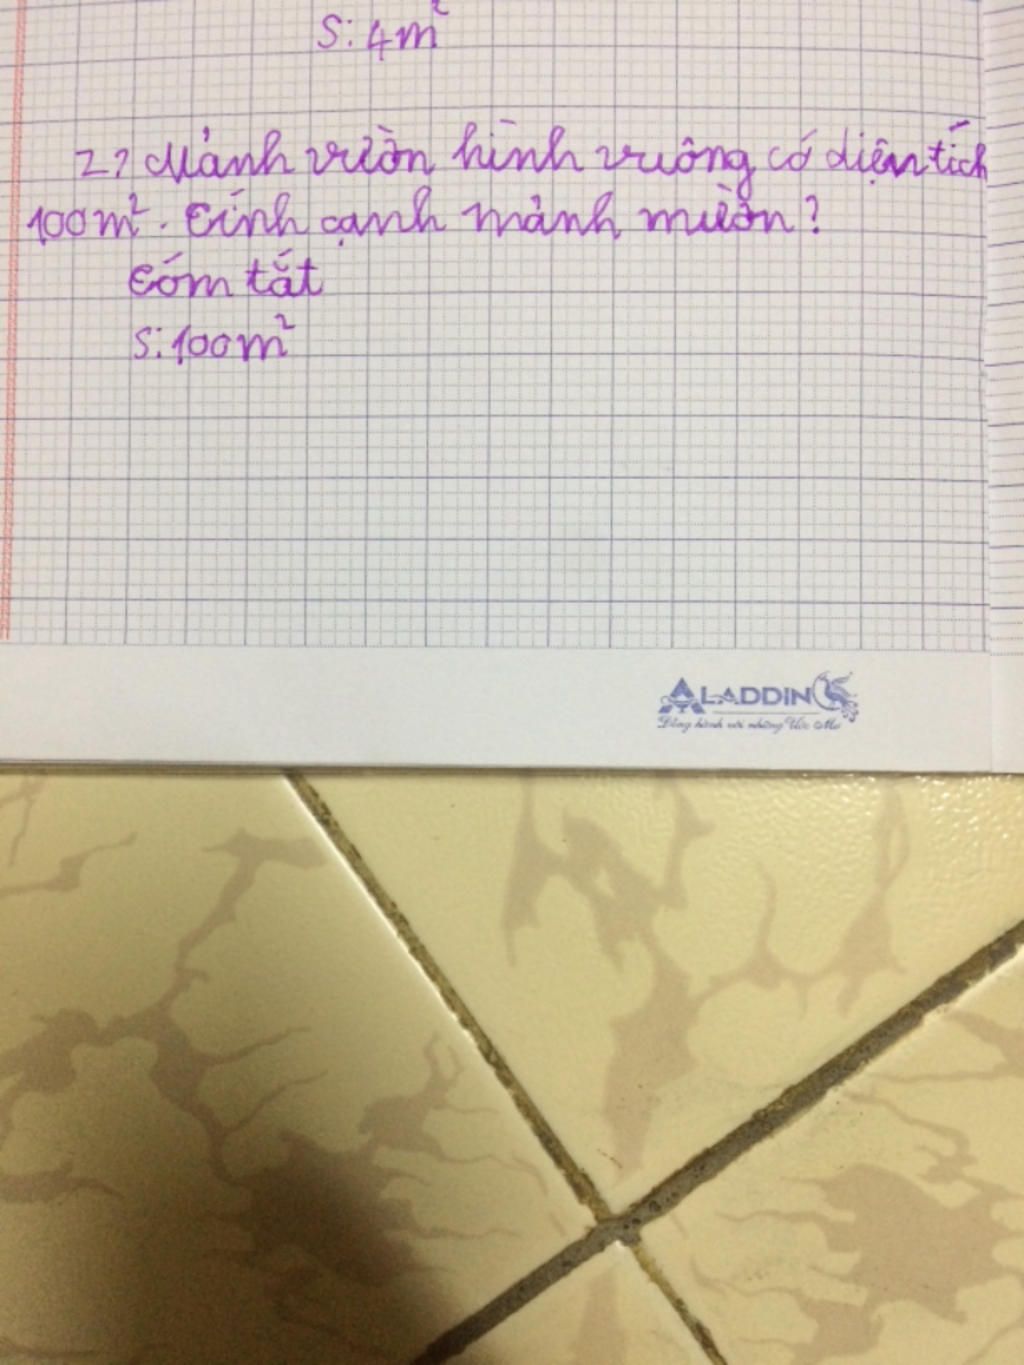 S: 4m²
2? Mảnh vườn hình vuông có diện tích
100m². Tính cạnh mảnh mườn?
Tóm tắt
S: 100m²
ALADDIN
Đồng hành với những Ước Mơ